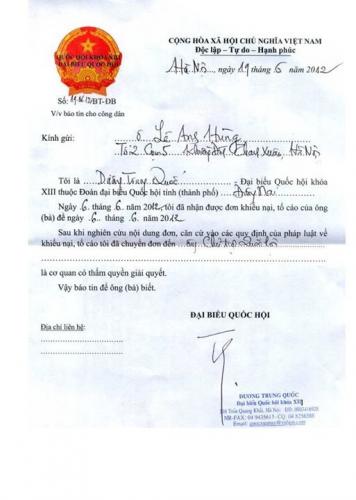 CỘNG HÒA XÃ HỘI CHỦ NGHĨA VIỆT NAM
Độc lập – Tự do – Hạnh phúc
Hà Nội, ngày 19 tháng 6 năm 2012
QUỐC HỘI KHÓA XIII
ĐẠI BIỂU QUỐC HỘI
Số: /BT-ĐB
V/v báo tin cho công dân
Kính gửi: Lê Anh Hùng
Tổ 2 Cụm 5 Khương Đình Thanh Xuân Hà Nội
Tôi là Dương Trung Quốc Đại biểu Quốc hội khóa
XIII thuộc Đoàn đại biểu Quốc hội tỉnh (thành phố) Đồng Nai
Ngày 6 tháng 6 năm 2012, tôi đã nhận được đơn khiếu nại, tố cáo của ông
(bà) đề ngày 6 tháng 6 năm 2012
Sau khi nghiên cứu nội dung đơn, căn cứ vào các quy định của pháp luật về
khiếu nại, tố cáo tôi đã chuyển đơn đến Chủ tịch Quốc hội
là cơ quan có thẩm quyền giải quyết.
Vậy báo tin để ông (bà) biết.
ĐẠI BIỂU QUỐC HỘI
Địa chỉ liên hệ:
DƯƠNG TRUNG QUỐC
Đại biểu Quốc hội khóa XIII
Trần Quang Khải, Hà Nội
Email: